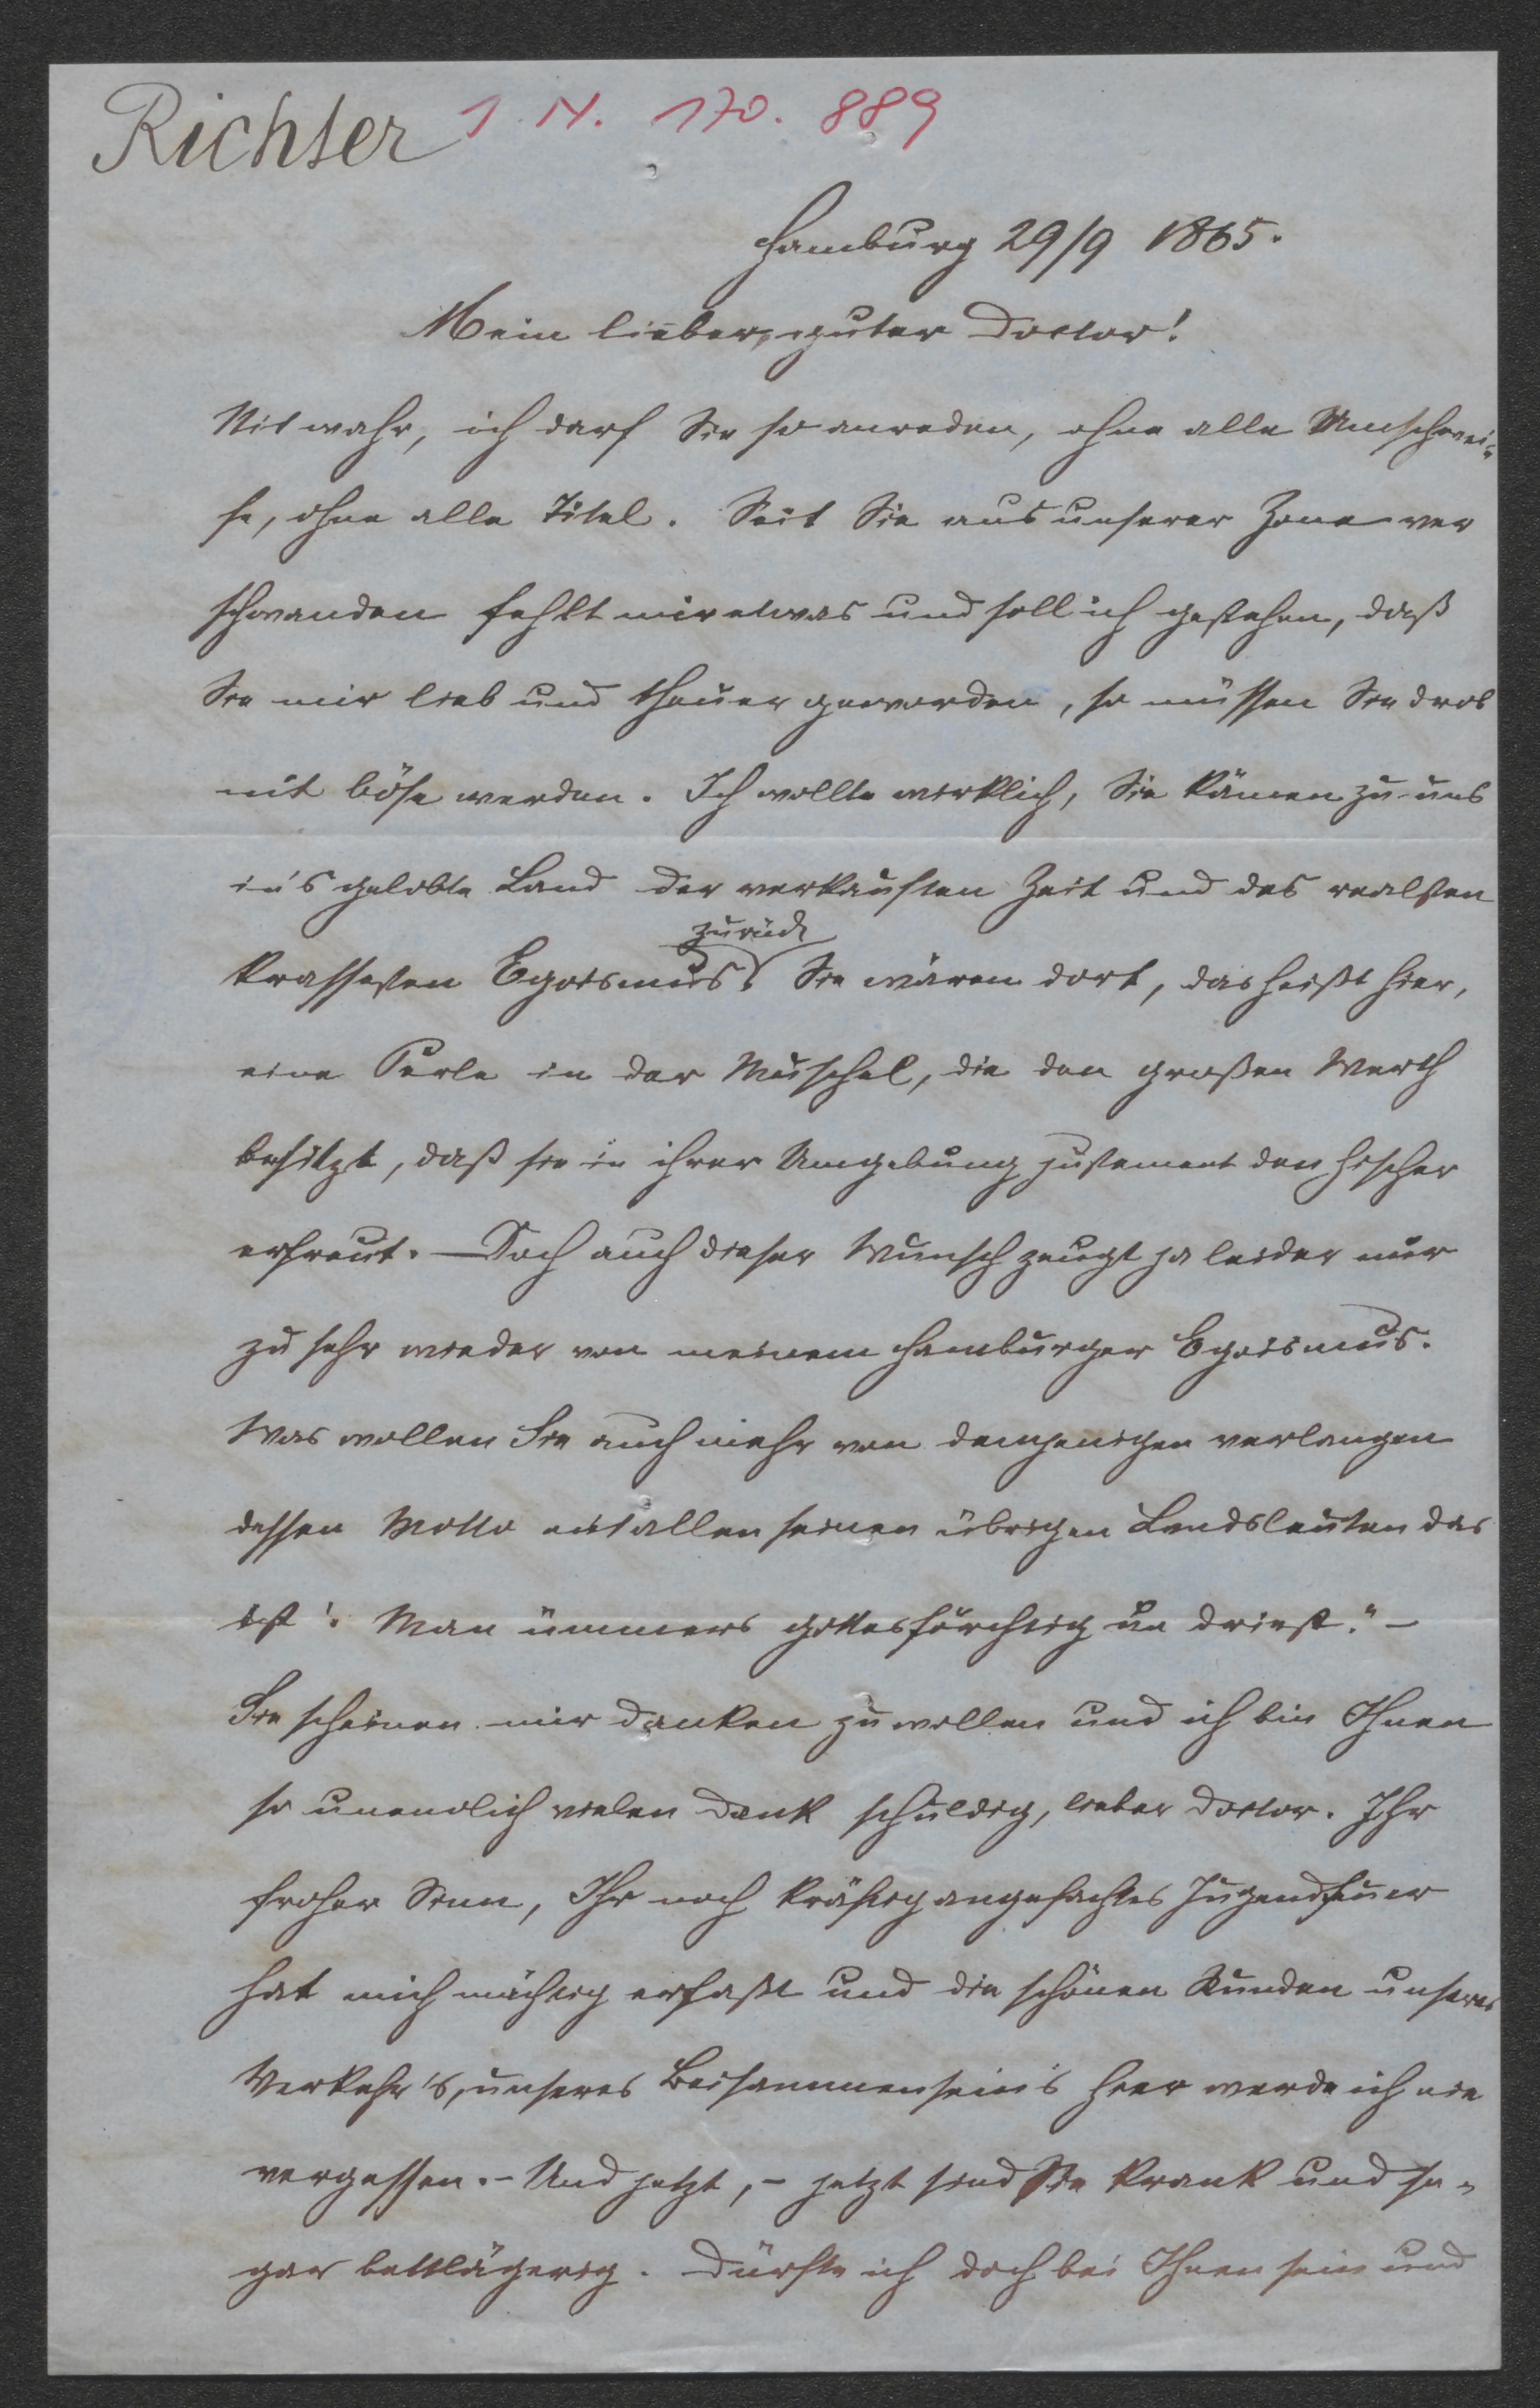 Richter I. N. 170.889
Hamburg 29/9 1865.
Mein lieber, guter Doctor!
Nit wahr, ich darf Sie so anreden, ohne alle Umschwei-
fe, ohne alle Titel. Seit Sie aus unserer Zone ver
schwanden fehlt mir etwas und soll ich gestehen, daß
Sie mir lieb und theuer geworden, so müssen Sie drob
nit böse werden. Ich wollte wirklich, Sie kämen zu uns
in's gelobte Land der verkauften Zeit und des realsten
zurück
krassesten Egoismus. Sie wären dort, das heißt hier,
eine Perle in der Muschel, die den großen Werth
besitzt, daß sie in ihrer Umgebung justement den Fischer
erfreut. – Doch auch dieser Wunsch zeugt ja leider nur
zu sehr wieder von meinem Hamburger Egoismus.
Was wollen Sie auch mehr von demjenigen verlangen
dessen Motto mit allen seinen übrigen Landsleuten das
ist: Man ümmers gottesfürchtig un driest." –
Sie scheinen mir danken zu wollen und ich bin Ihnen
so unendlich vielen Dank schuldig, lieber Doctor. Ihr
froher Sinn, Ihr noch kräftig angefachtes Jugendfeuer
hat mich mächtig erfaßt und die schönen Stunden unseres
Verkehr's, unseres Beisammensein's hier werde ich nie
vergessen. – Und jetzt, – jetzt sind Sie krank und so-
gar bettlägerig. Dürfte ich doch bei Ihnen sein und